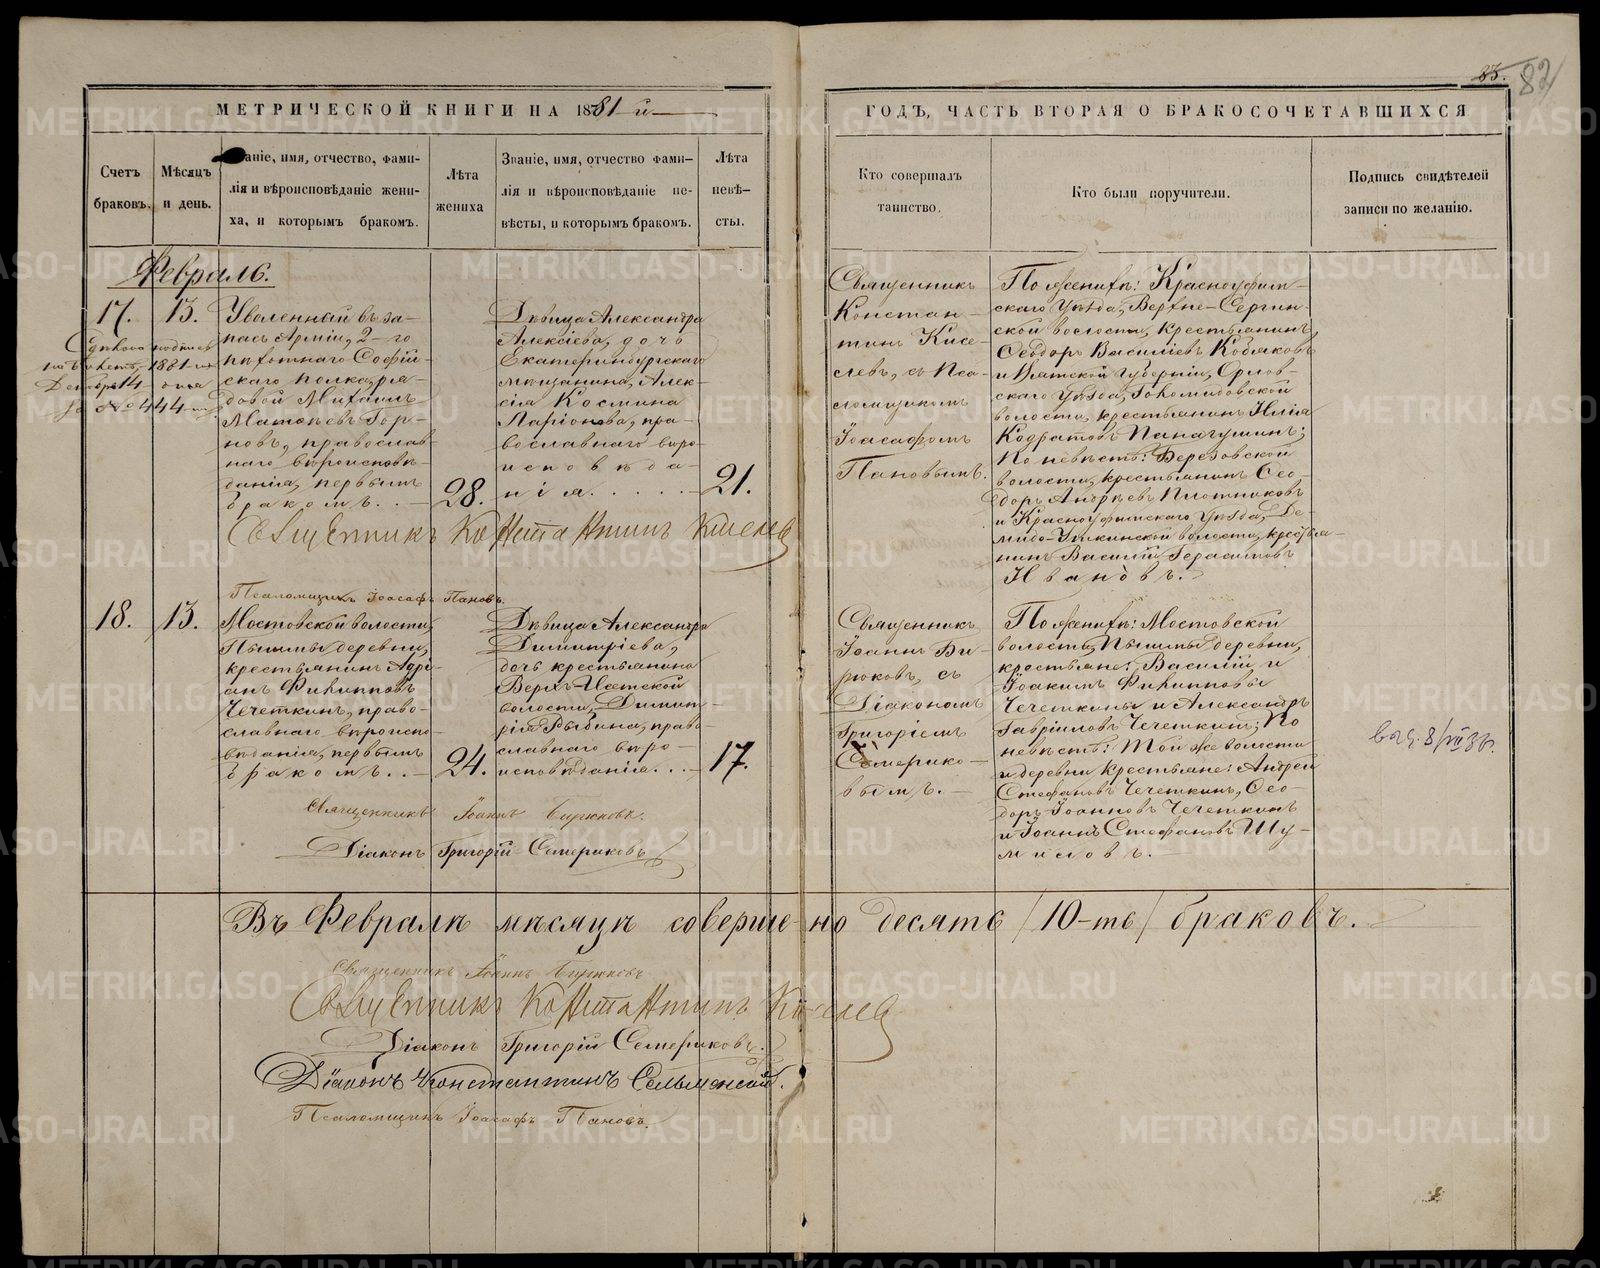 83. 82
МЕТРИЧЕСКОЙ КНИГИ НА 1881-й
ГОДЪ, ЧАСТЬ ВТОРАЯ О БРАКОСОЧЕТАВШИХСЯ
Счетъ
браковъ.
Мѣсяцъ
и день.
Званіе, имя, отчество, фами-
лія и вѣроисповѣданіе жени-
ха, и которымъ бракомъ.
Лѣта
жениха
Званіе, имя, отчество фами-
лія и вѣроисповѣданіе не-
вѣсты, и которымъ бракомъ.
Лѣта
невѣ-
сты.
Кто совершалъ
таинство.
Кто были поручители.
Подпись свидѣтелей
записи по желанію.
Февраль.
17. 13.
на 1881
Декабря 14
за № 444
Уволенный въ за-
пасъ Арміи, 2-го
пѣхотнаго Софій-
скаго полка, ря-
довой Михаилъ
Матѳеевъ Гор-
новъ, православ-
наго вѣроисповѣ-
данія, первымъ
бракомъ.
28.
Дѣвица Александра
Алексіева, дочь
Екатеринбургскаго
мѣщанина, Алек-
сія Космина
Ларіонова, пра-
вославнаго вѣро-
исповѣда-
нія.
21.
Священникъ
Констан-
тинъ Кисе-
левъ, съ Пса-
ломщикомъ
Іоасафомъ
Пановымъ.
По женихѣ: Красноуфим-
скаго уѣзда, Верхне-Сергин-
ской волости, крестьянинъ,
Ѳеодоръ Василіевъ Кобяковъ
и Вятской губерніи, Орлов-
скаго уѣзда,
волости, крестьянинъ Илія
Кодратовъ Панагушинъ;
По невѣстѣ: Березовской
волости, крестьянинъ Ѳео-
доръ Андреевъ Плотниковъ
и Красноуфимскаго уѣзда, Де-
мидо-Уткинской волости, крестья-
нинъ Василій Герасимовъ
Ивановъ.
Священникъ Константинъ Киселевъ
Псаломщикъ Іоасафъ Пановъ.
18. 13.
Мостовской волости,
Пышмы деревни,
крестьянинъ Адрі-
анъ Филипповъ
Чечеткинъ, право-
славнаго вѣроиспо-
вѣданія, первымъ
бракомъ.
24.
Дѣвица Александра
Димитріева,
дочь крестьянина
Верхъ-Исетской
волости, Димит-
рія Рыбина, право-
славнаго вѣро-
исповѣданія.
17.
Священникъ
Іоаннъ Би-
рюковъ, съ
Діакономъ
Григоріемъ
Семерико-
вымъ.
По женихѣ: Мостовской
волости, Пышмы деревни,
крестьяне: Василій и
Іоакимъ Филипповы
Чечеткины и Александръ
Гавріиловъ Чечеткинъ; По
невѣстѣ: Той же волости
и деревни крестьяне: Андрей
Стефановъ Чечеткинъ, Ѳео-
доръ Іоанновъ Чечеткинъ
и Іоаннъ Стефановъ Шу-
миловъ.
Священникъ Іоаннъ Бирюковъ.
Діаконъ Григорій Семериковъ
Въ Февралѣ мѣсяцѣ совершено десять /10-ть/ браковъ.
Священникъ Іоаннъ Бирюковъ
Священникъ Константинъ Киселев
Діаконъ Григорій Семериковъ.
Діаконъ Константинъ Сельменскій.
Псаломщикъ Іоасафъ Пановъ.